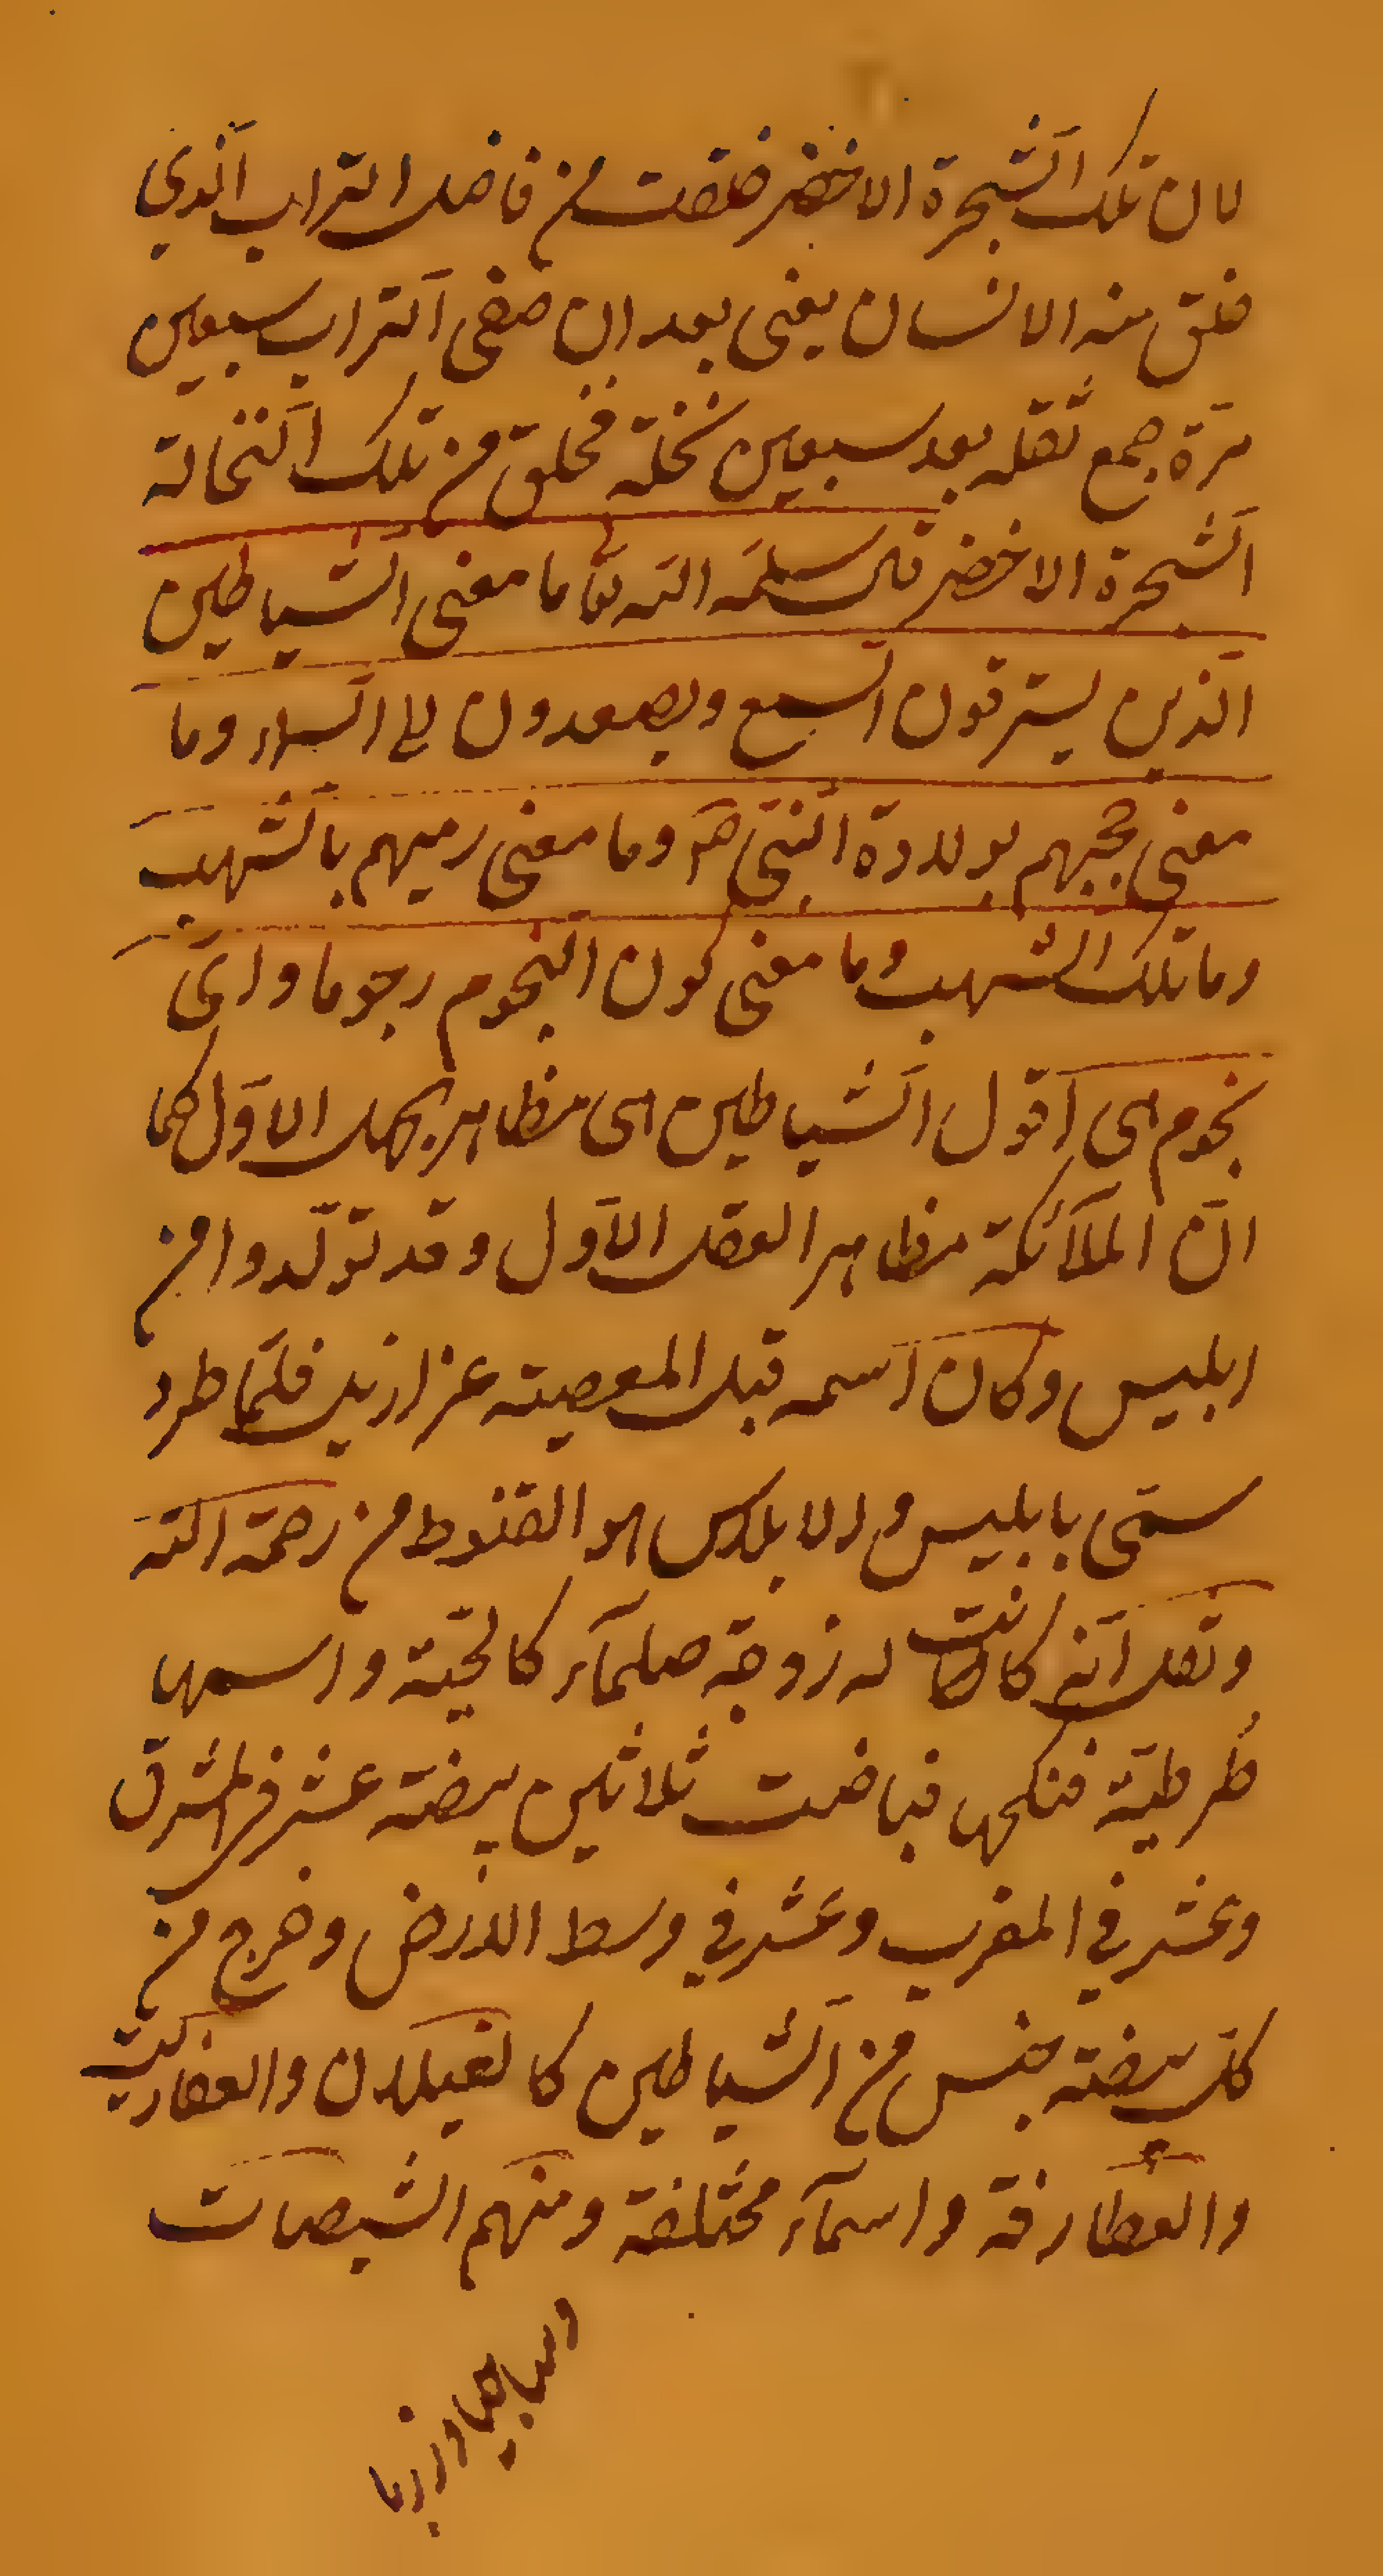 لان تلك الشجرة الاخضر خلقت من فاضل التراب الذي
خلق منه الانسان يعنى بعد ان صفى التراب سبعين
مرّة جمع ثقله بعد سبعين نخلة فخلق من تلك النخالة
الشجرة الاخضر قال سلمه الله تعا ما معنى الشياطين
الذين يسترقون السمع ويصعدون الى السماء وما
معنى حجبهم بولادة النبى ص وما معنى رميهم بالشهب
وما تلك الشهب وما معنى كون النجوم رجوما واىّ
نجوم هى اقول الشياطين هى مظاهر الجهل الاول كما
انّ الملآئكة مظاهر العقل الاول وقد تولّدوا من
ابليس وكان اسمه قبل المعصية عزازيل فلمّا طرد
سمّى بابليس والابلاس هو القنوط من رحمة الله
ونقل انّه كانت له زوجة صلمآء كالحيّة واسمها
طُرطبّة فنكحها فباضت ثلاثين بيضة عشر فى المشرق
وعشر في المغرب وعشر في وسط الارض وخرج من
كل بيضة جنس من الشياطين كالغيلان والعفاريت
والغطارفة واسمآء مختلفة ومنهم الشيصات